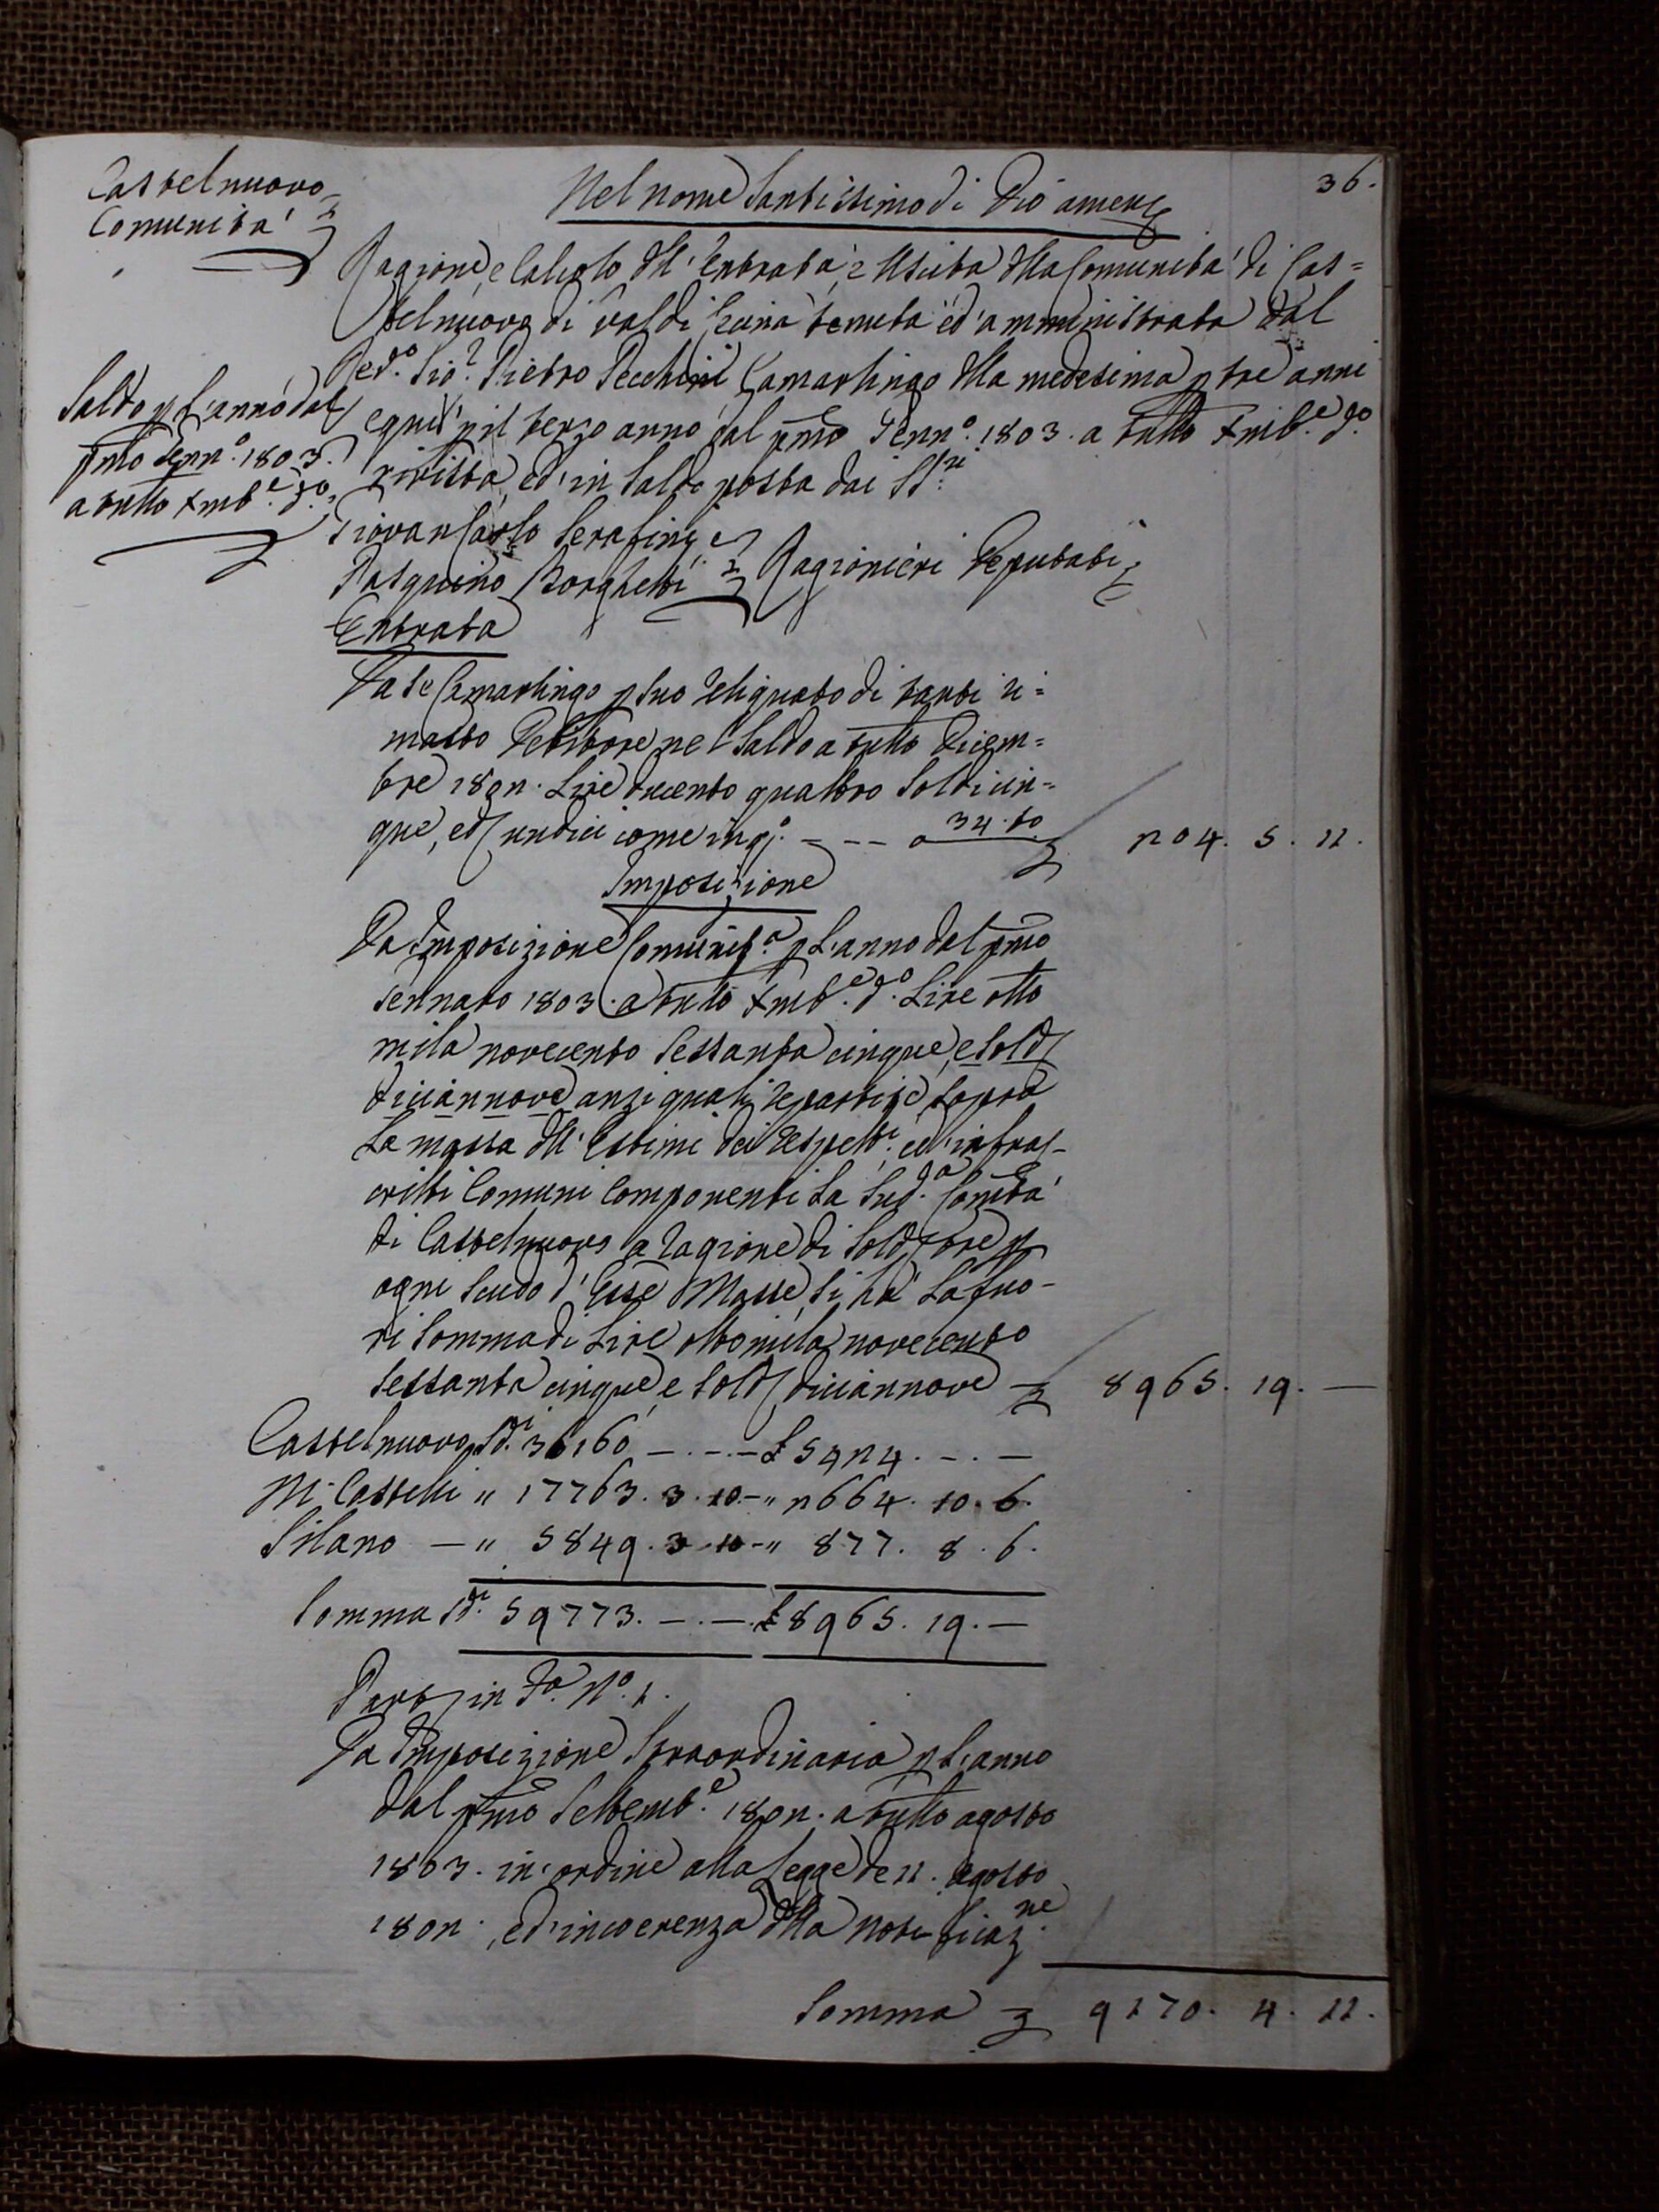 36.
Castelnuovo
Comunità
Nel nome Santissimo di Dio amen
Ragione, e Calcolo dell' Entrata, e Uscita della Comunità di Cas=
telnuovo di Val di Cecina tenuta ed' amministrata dal
Sed.º Sig.r Pietro Pecchini Camarlingo della medesima p tre anni
Saldo p L'anno dal
pmo Genn.º 1803.
a tutto Xmb.e d.o
e quest' p il terzo anno dal pmo Genn.º 1803. a tutto Xmb.e d.o
rivista, ed' in Saldo posta dai SS.ri
Giovan Carlo Serafini, e
Pasquino Borghetti
Ragionieri Deputati
Entrata
Da Se Camarlingo p Suo Reliquato di tanti ri=
masto Debitore nel Saldo a tutto Dicem=
bre 1802. Lire ducento quattro Soldi cin=
que, ed undici come in q.º - - - a 34. to 204. 5. 11.
Imposizione
Da Imposizione Comunit.a p L'anno dal pmo
Gennaro 1803. a tutto Xmb.e d.o Lire otto
mila novecento Sessanta cinque, e Sold
diciannove anzi quali repartite, Sopra
La massa dell' Estimi dei respett.i ed' infras-
critti Comuni Componenti La Sud.a Comtà
di Castelnuovo a ragione di Sold tre p
ogni Scudo d' Esse Masse, Si hà La fuo-
ri Somma di Lire ottomila novecento
Sessanta cinque, e Sold diciannove 8965. 19. —
Castelnuovo Sd.i 36160 — . - . — £ 5424. — . —
M. Castelli " 17763. 3. 10 — " 2664. 10. 6.
Silano — " 5849. 3. 10 — " 877. 8. 6.
Somma Sd.i 59773. — . — . £ 8965. 19. —
Part in F.a N.º 1.
Da Imposizione Straordinaria p L'anno
dal pmo Settemb.e 1802. a tutto agosto
1803. in ordine alla Legge de 11. agosto
1802., ed' in coerenza della Notificaz.ne
Somma 9170. 4. 11.